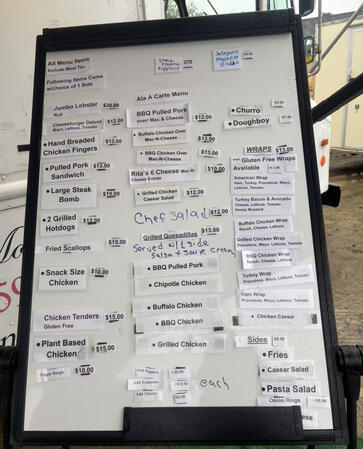 All Menu Items
Exclude Meal Tax
Following Items Come
w/choice of 1 Side
Jumbo Lobster $20.00
Roll
Cheeseburger Deluxe $12.00
Mayo, Lettuce, Tomato
• Hand Breaded $13.00
Chicken Fingers
• Pulled Pork $13.00
Sandwich
• Large Steak $15.00
Bomb
• 2 Grilled $12.00
Hotdogs
Fried Scallops $15.00
• Snack Size $10.00
Chicken
Chicken Tenders $15.00
Gluten Free
• Plant Based
Chicken $15.00
Veggie Burger $10.00
Ala A Carte Menu
BBQ Pulled Pork $13.00
over Mac & Cheese
• Buffalo Chicken Over $13.00
Mac-N-Cheese
• BBQ Chicken Over $13.00
Mac-N-Cheese
Rita's 6 Cheese Mac-N
Cheese $10.00
• Grilled Chicken $12.00
Caesar Salad
Chef Salad $12.00
Grilled Quesadillas $13.00
Served w/1 side
Salsa + Sour Cream
• BBQ Pulled Pork
• Chipotle Chicken
• Buffalo Chicken
• BBQ Chicken
• Grilled Chicken
Add Peppers
Add Tomatoes
Add Onions
each
• Churro
• Doughboy
WRAPS $13.00
*** Gluten Free Wraps
Available
American Wrap
Ham, Turkey, Provolone, Mayo,
Lettuce, Tomato
Turkey Bacon & Avocado
Cheese, Lettuce, Tomato
Honey Mustard
Buffalo Chicken Wrap
Ranch, Cheese, Lettuce
Grilled Chicken Wrap
Provolone, Mayo, Lettuce, Tomato
BBQ Chicken Wrap
Ranch, Cheese, Lettuce
Turkey Wrap
Provolone, Mayo, Lettuce, Tomato
Ham Wrap
Provolone, Mayo, Lettuce, Tomato
• Chicken Caesar
Sides $3.00
• Fries
• Caesar Salad
• Pasta Salad
Onion Rings